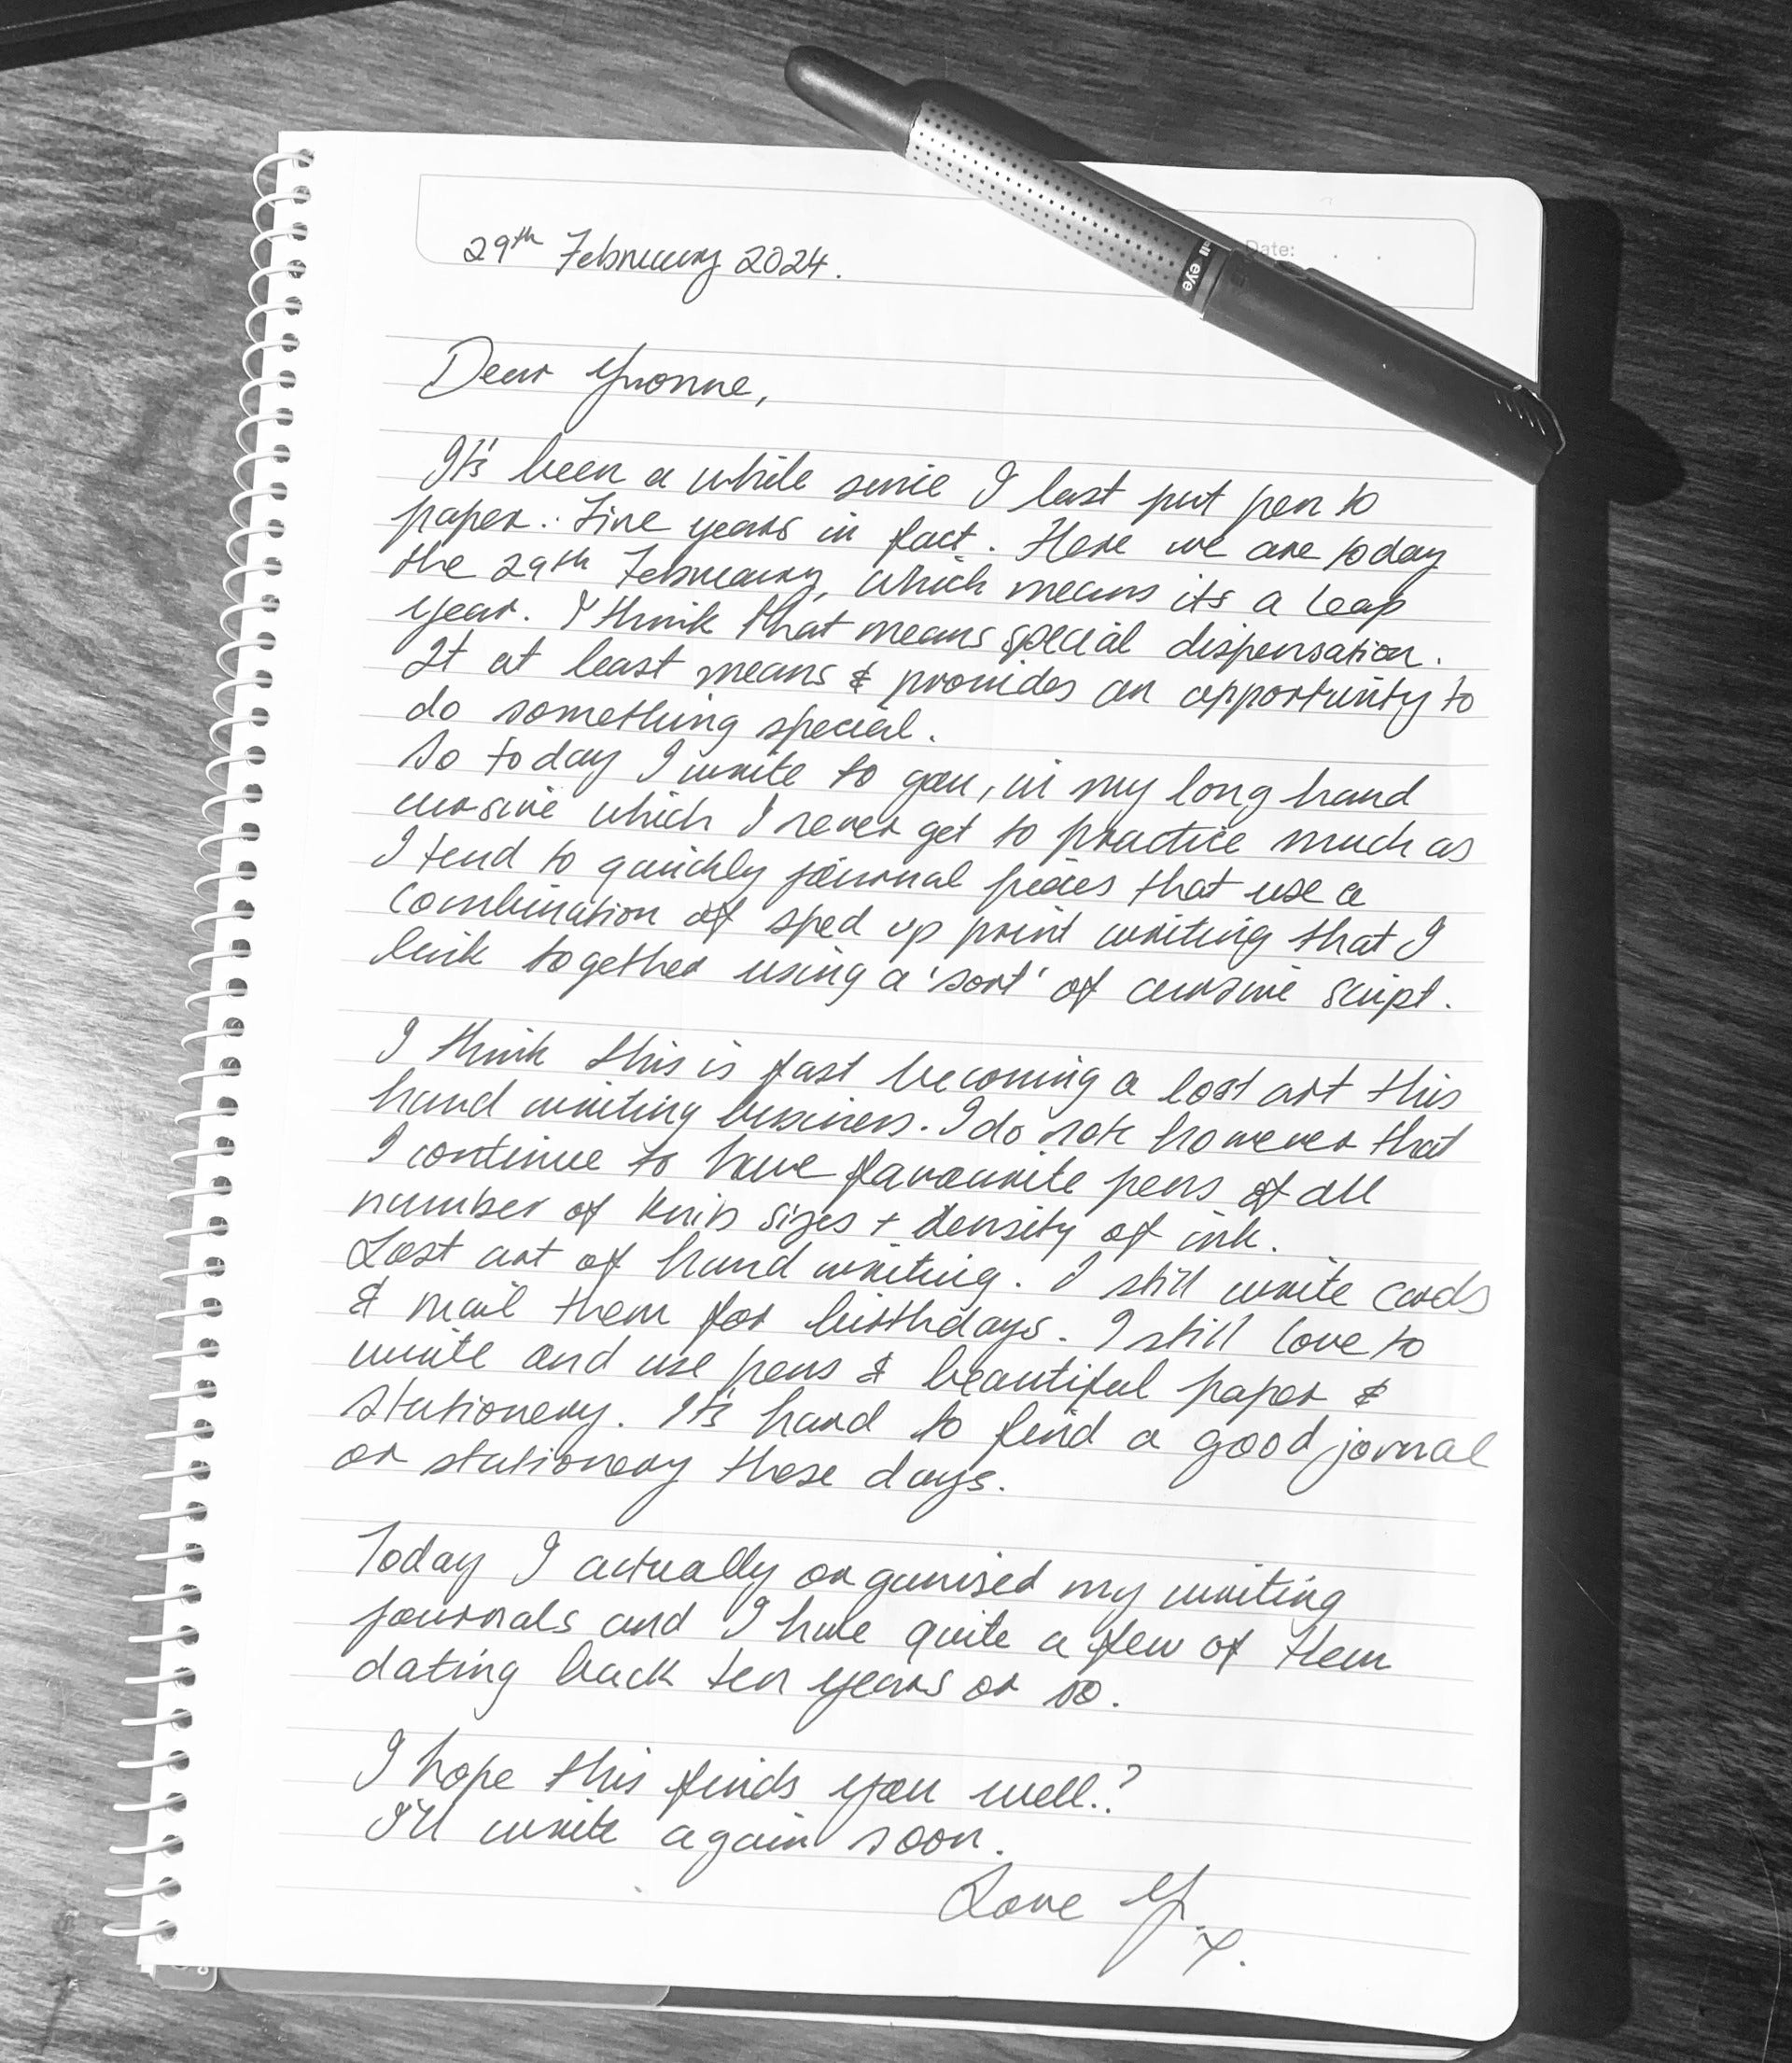 29th February 2024.
Date:
all eye
Dear Yvonne,
It's been a while since I last put pen to
paper.. Five years in fact. Here we are today
the 29th February, which means its a leap
year. I think that means special dispensation.
It at least means & provides an opportunity to
do something special.
So today I write to you, in my long hand
cursive which I never get to practice much as
I tend to quickly journal pieces that use a
combination of sped up print writing that I
link together using a 'sort' of cursive script.
I think this is fast becoming a lost art this
hand writing business. I do note however that
I continue to have favourite pens of all
number of knib sizes + density of ink.
Lost art of hand writing. I still write cards
& mail them for birthdays. I still love to
write and use pens & beautiful paper &
stationery. It's hard to find a good jornal
or stationery these days.
Today I actually organised my writing
journals and I have quite a few of them
dating back ten years or so.
I hope this finds you well.?
I'll write again soon.
Love Y.
x.